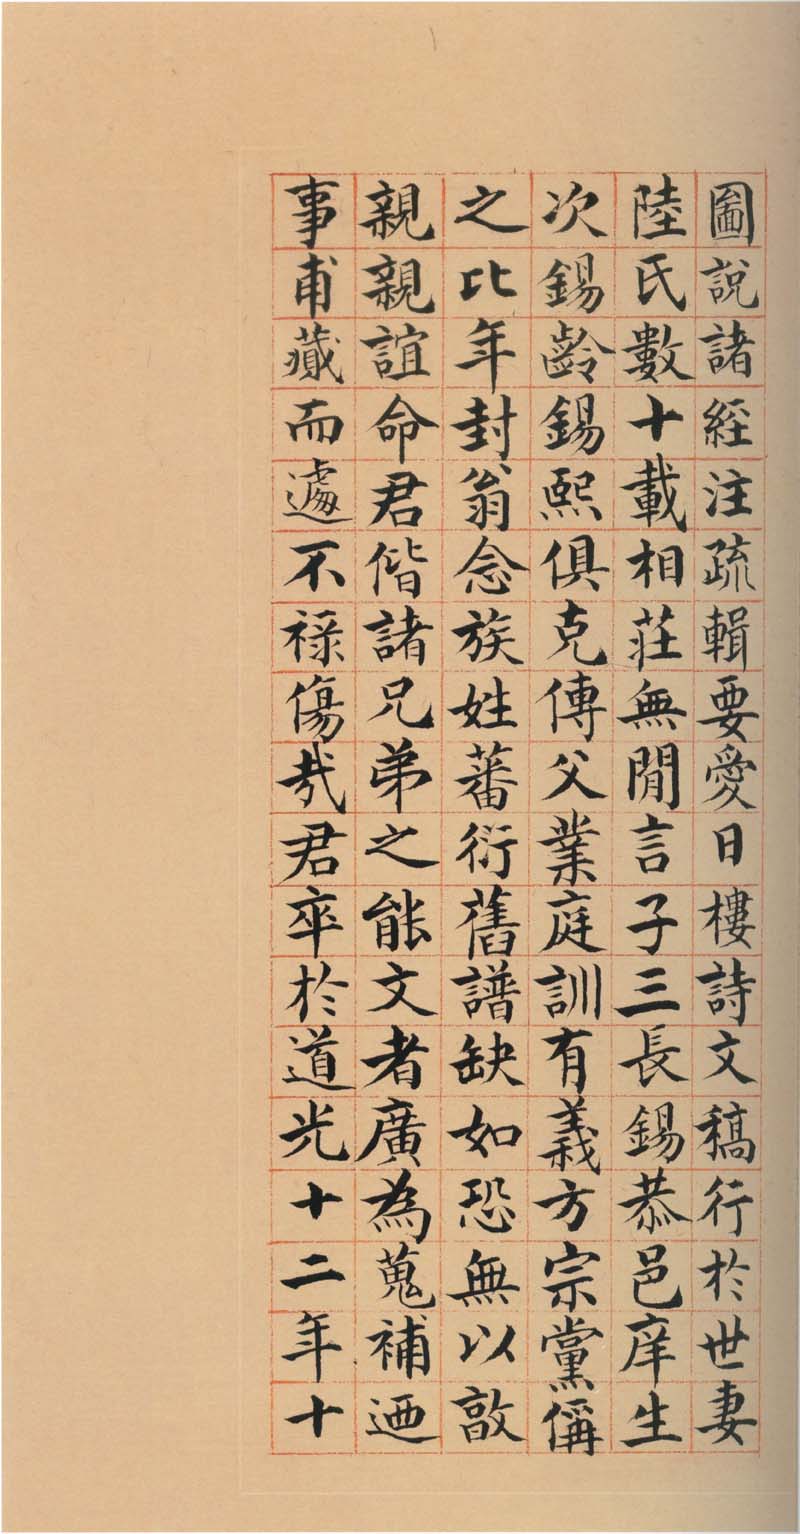 圖說諸經注疏輯要愛日樓詩文稿行於世妻
陸氏數十載相莊無閒言子三長錫恭邑庠生
次錫齡錫熙俱克傳父業庭訓有義方宗黨偁
之比年封翁念族姓蕃衍舊譜缺如恐無以敦
親親誼命君偕諸兄弟之能文者廣為蒐補迺
事甫蕆而遽不祿傷哉君卒於道光十二年十